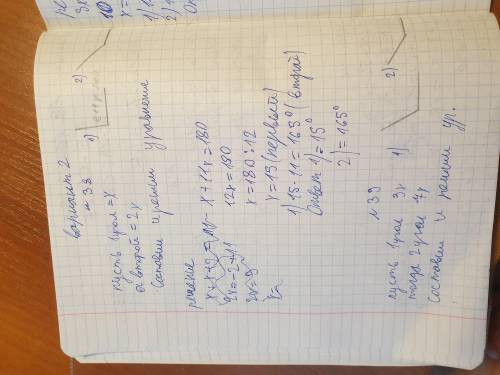 вариант 2
№ 38
1) 2)
пусть 1 угол = x
а второй = 2x
Составим и решим уравнение
решение
x + 11x = 180
2x = 9
12x = 180
x = 180 : 12
x = 15 (первый)
1) 15 · 11 = 165° (второй)
Ответ 1) = 15°
2) = 165°
№ 39
пусть 1 угол 3x 1) 2)
тогда 2 угол 7x
составим и решим ур.